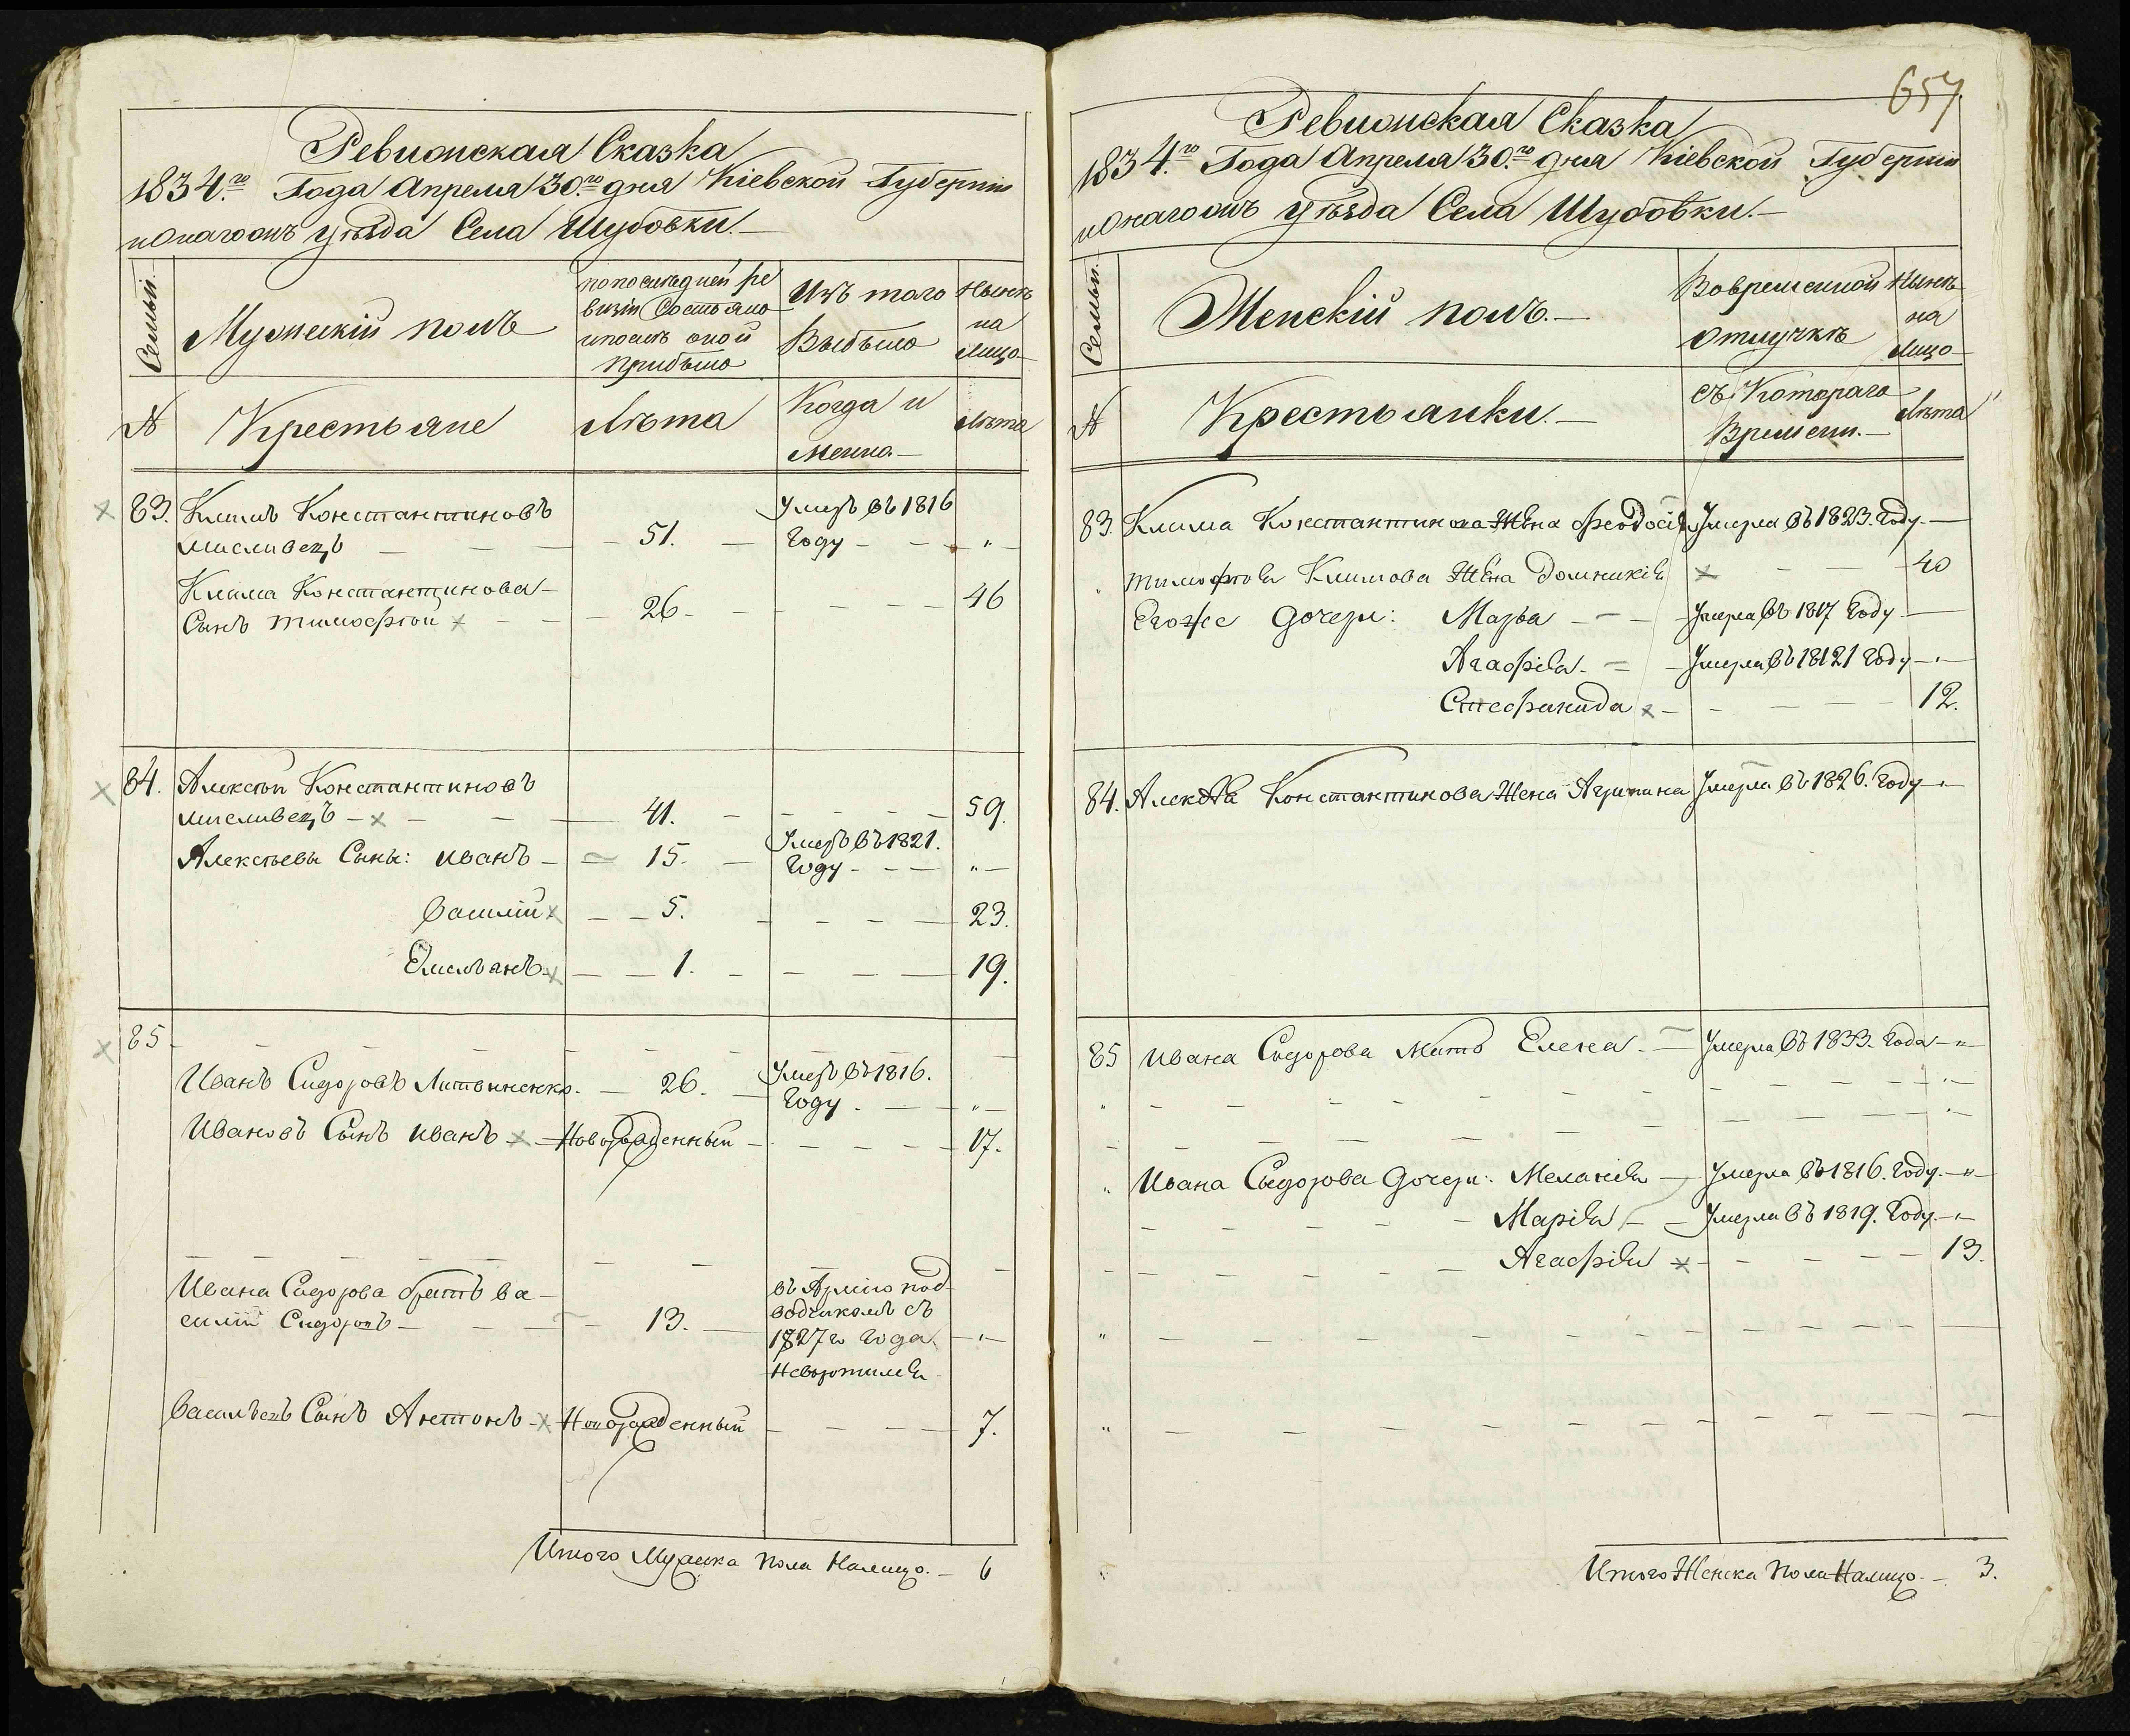 Ревизская Сказка
1834.го Года Апреля 30.го дня Кіевской Губерніи
и Онагожъ уѣзда Села Шубовки.
Семьи.
Мужескій полъ
по последней ре
визіи Состояло
и послѣ оной
прибыло
Изъ того
Выбыло
Нынѣ
на
лицо
№
Крестьяне
Лѣта
Когда и
менно.
Лѣта
83. Климъ Константиновъ
мисливецъ 51. Умеръ въ 1816
Году „
Клима Константинова
Сынъ тимофѣй × 26 46
84. Алексѣй Константиновъ
мисливецъ × 41. 59.
Алексѣевы Сыны: иванъ 15. Умеръ въ 1821.
Году „
василій × 5. 23.
Емельянъ × 1. 19.
85
Иванъ Сидоровъ Литвиненко. 26. Умеръ въ 1816.
Году „
Ивановъ Сынъ иванъ × Новорожденный 17.
Ивана Сидорова братъ ва
силій Сидоровъ 13. въ Армію под
водчикомъ съ
1827го Года „
Невротился
Васильевъ Сынъ Антонъ × Новорожденный 7.
Итого Мужеска пола Налицо. 6
657
Ревизская Сказка
1834.го Года Апреля 30.го дня Кіевской Губерніи
и Онагожъ уѣзда Села Шубовки.
Семьи.
Женскій полъ.
Во временной
отлучкѣ
Нынѣ
на
Лицо
№
Крестьянки.
съ Котораго
Времени.
Лѣта
83. Клима Константинова Жена феодосія Умерла въ 1823. Году.
тимофѣя Климова Жена Домникія × 40
Егоже дочери: Марья Умерла въ 1817 Году.
Агафія Умерла въ 1821 Году „
Стефанида × 12.
84. Алексѣя Константинова Жена Агрипина Умерла въ 1826. Году „
85 ивана Сидорова мать Елена Умерла въ 1833. Года „
„ Ивана Сидорова дочери: Меланія Умерла въ 1816. Году. „
Марія Умерла въ 1819. Году. „
Агафія × 13.
Итого Женска Пола Налицо. 3.